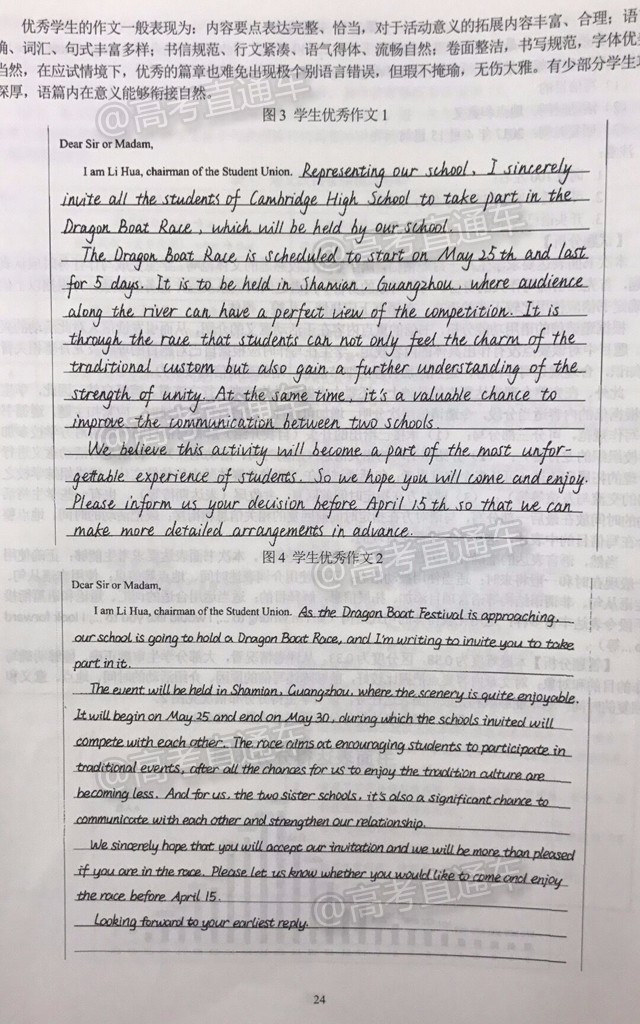 优秀学生的作文一般表现为：内容要点表达完整、恰当，对于活动意义的拓展内容丰富、合理；语
确、词汇、句式丰富多样；书信规范、行文紧凑、语气得体、流畅自然；卷面整洁，书写规范，字体优
当然，在应试情境下，优秀的篇章也难免出现极个别语言错误，但瑕不掩瑜，无伤大雅。有少部分学生
深厚，语篇内在意义能够衔接自然。
@高考直通车
图 3 学生优秀作文 1
Dear Sir or Madam,
I am Li Hua, chairman of the Student Union. Representing our school, I sincerely
invite all the students of Cambridge High School to take part in the
Dragon Boat Race, which will be held by our school.
@高考直通车
The Dragon Boat Race is scheduled to start on May 25th and last
for 5 days. It is to be held in Shamian, Guangzhou, where audience
along the river can have a perfect view of the competition. It is
through the race that students can not only feel the charm of the
traditional custom but also gain a further understanding of the
strength of unity. At the same time, it's a valuable chance to
improve the communication between two schools.
@高考直通车
We believe this activity will become a part of the most unfor-
gettable experience of students. So we hope you will come and enjoy.
Please inform us your decision before April 15th so that we can
make more detailed arrangements in advance.
@高考直通车
图 4 学生优秀作文 2
Dear Sir or Madam,
I am Li Hua, chairman of the Student Union. As the Dragon Boat Festival is approaching,
our school is going to hold a Dragon Boat Race, and I'm writing to invite you to take
part in it.
The event will be held in Shamian, Guangzhou, where the scenery is quite enjoyable.
It will begin on May 25 and end on May 30, during which the schools invited will
compete with each other. The race aims at encouraging students to participate in
@高考直通车
traditional events, after all the chances for us to enjoy the tradition culture are
becoming less. And for us, the two sister schools, it's also a significant chance to
communicate with each other and strengthen our relationship.
We sincerely hope that you will accept our invitation and we will be more than pleased
if you are in the race. Please let us know whether you would like to come and enjoy
the race before April 15.
@高考直通车
Looking forward to your earliest reply.
24